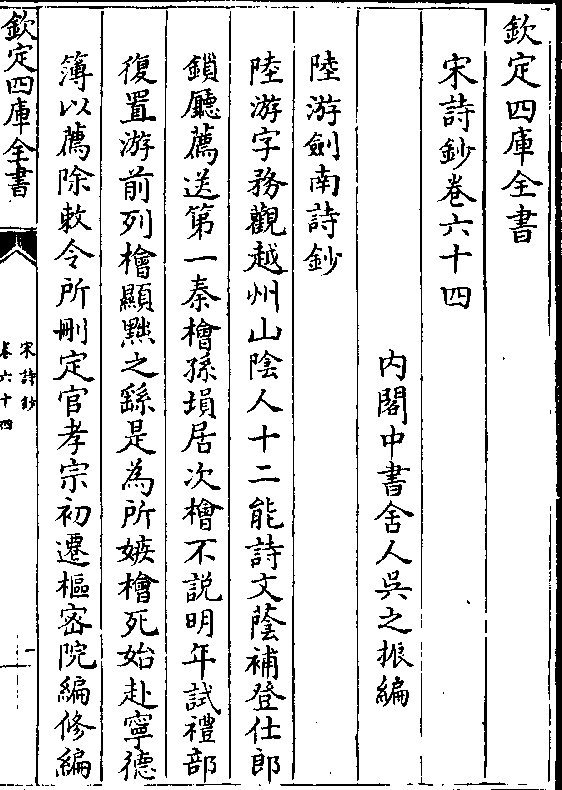 欽定四庫全書
宋詩鈔卷六十四
内閣中書舍人吳之振編
陸游劍南詩鈔
陸游字務觀越州山陰人十二能詩文蔭補登仕郎
鎖廳薦送第一秦檜孫塤居次檜不説明年試禮部
復置游前列檜顯黜之繇是為所嫉檜死始赴寧德
簿以薦除敕令所刪定官孝宗初遷樞密院編修編
欽定四庫全書
宋詩鈔
卷六十四
一